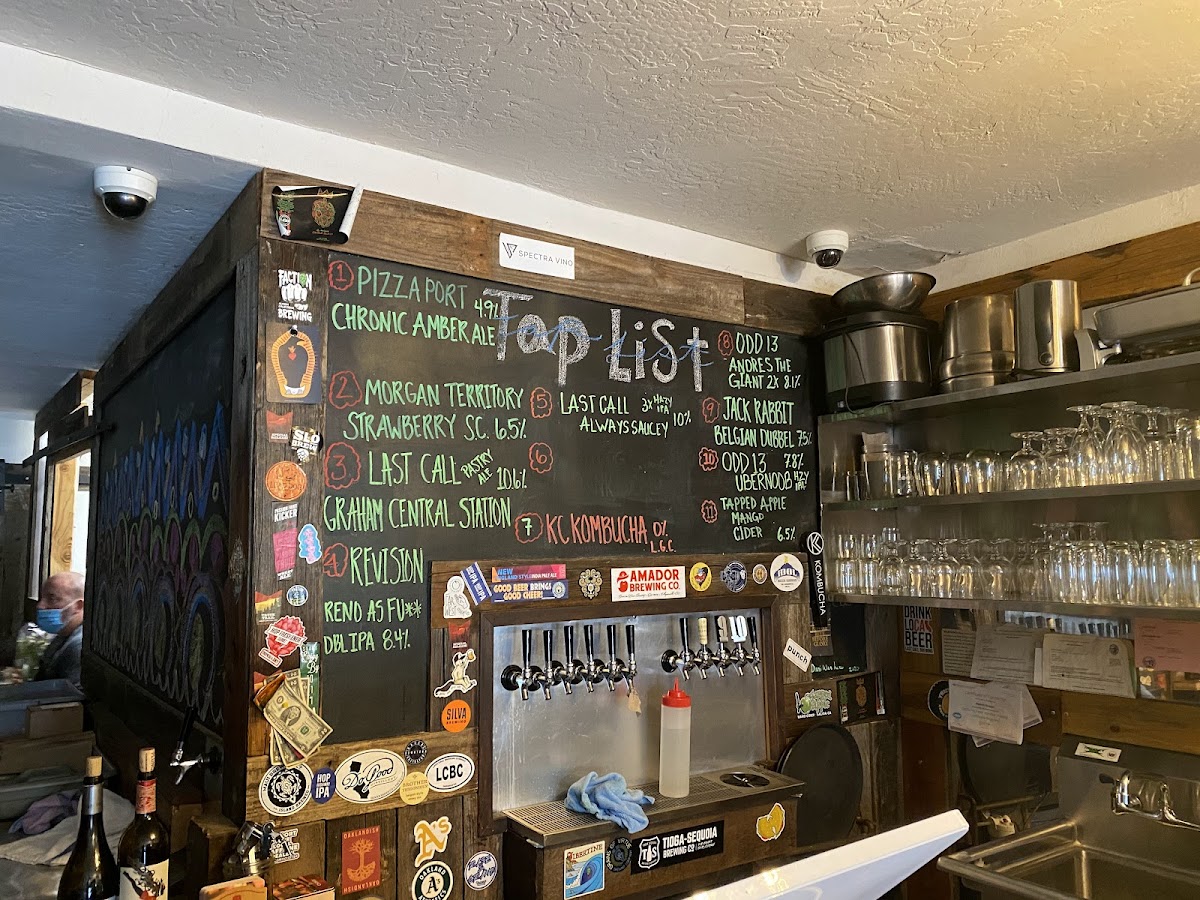 SPECTRA VINO
FACTION
BREWING
Tap List
1 PIZZA PORT 4.9%
CHRONIC AMBER ALE
2 MORGAN TERRITORY
STRAWBERRY S.C. 6.5%
3 LAST CALL PASTRY ALE 10.6%
GRAHAM CENTRAL STATION
4 REVISION
RENO AS FU**
DBL IPA 8.4%
5 LAST CALL 3x HAZY IPA
ALWAYS SAUCEY 10%
6
7 KC KOMBUCHA 0%
L.G.C.
8 ODD 13
ANDRES THE
GIANT 2X 8.1%
9 JACK RABBIT
BELGIAN DUBBEL 7.5%
10 ODD 13 7.8%
UBERNOOB HZY IPA
11 TAPPED APPLE
MANGO
CIDER 6.5%
SLO
BREW
KICKER
HOP FRESHENER
NEW
ENGLAND STYLE INDIA PALE ALE
GOOD BEER BRINGS
GOOD CHEER!
AMADOR
BREWING CO.
IDOL
KOMBUCHA
DRINK
LOCAL
BEER
punch
SILVA
BREWING
Dr. Good
LCBC
HOP
A's
OAKLANDISH
OAKLAND
LIBERTINE
TIOGA-SEQUOIA
BREWING CO
TS